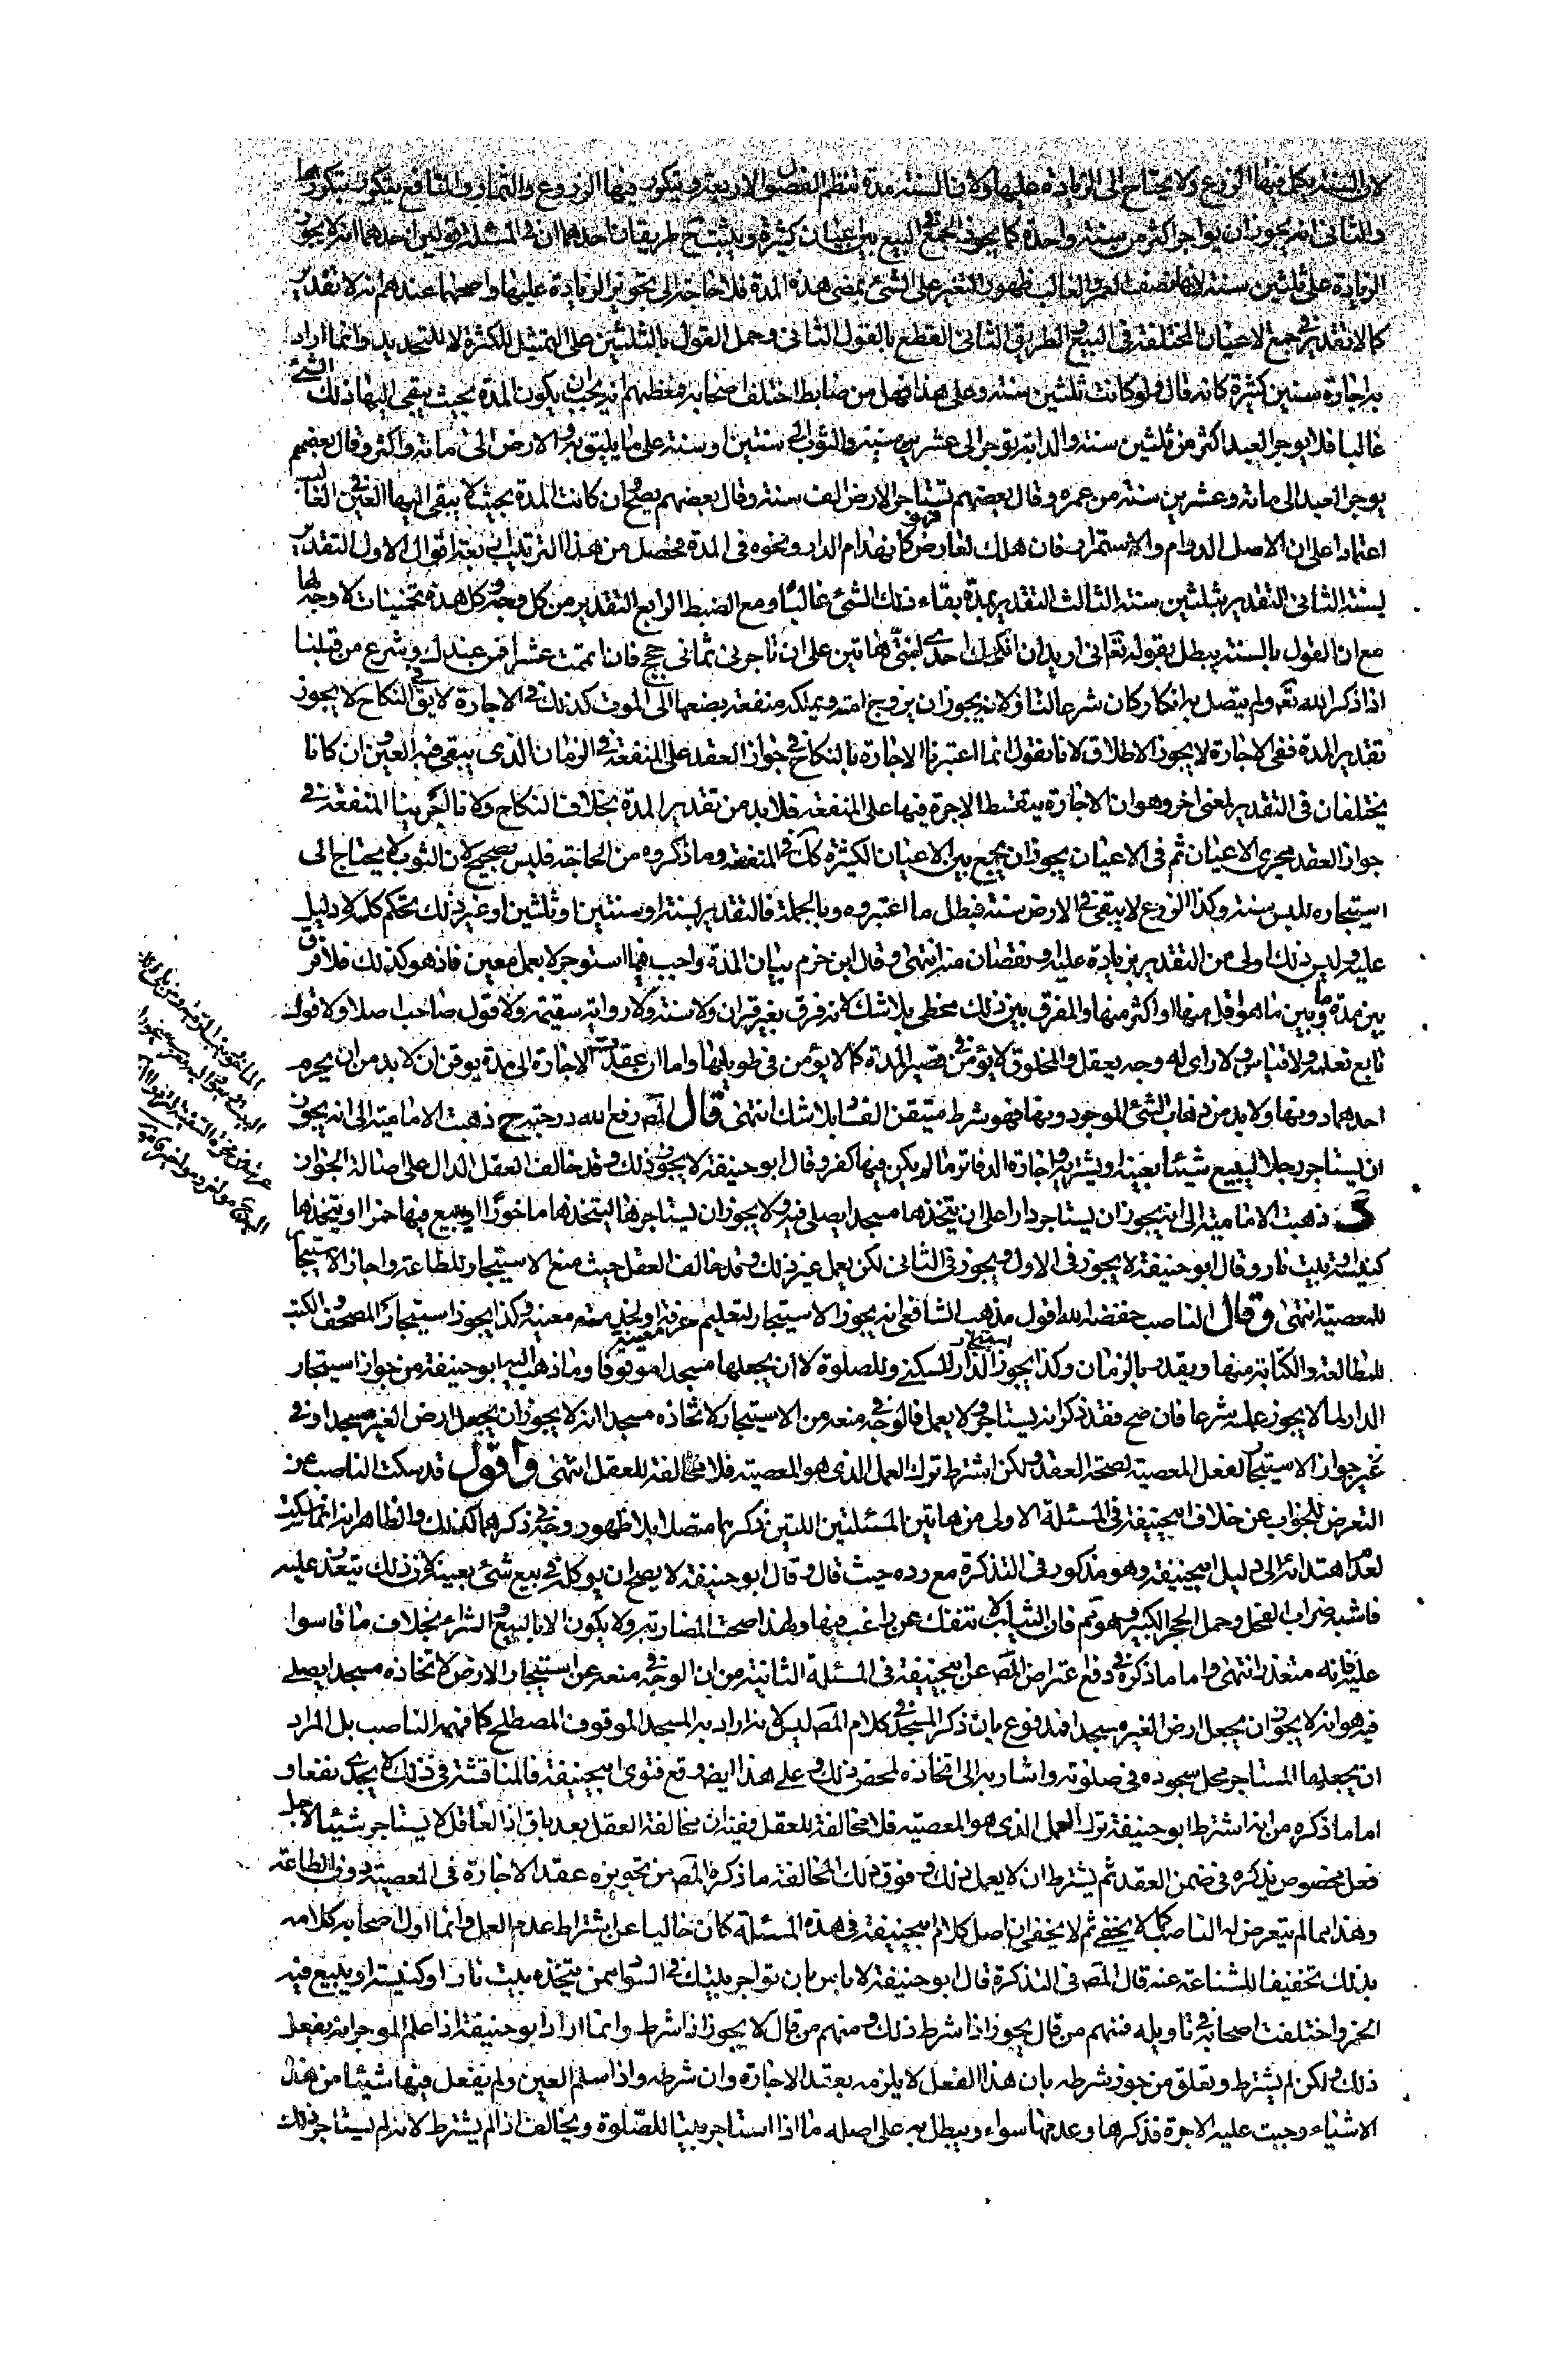 لان السنة يكمل فيها الزرع ولا يحتاج الى الزيادة عليها ولان السنة مدة تنظم الفصول الاربعة ويتكرر فيها الزروع والثمار والمنافع يتكرر بتكررها
والثاني انه يجوز ان يواجر اكثر من سنة واحدة كما يجوز الجمع في البيع بين اعيان كثيرة ويثبت ح طريقان احدهما ان في المسئلة قولين احدهما انه لا يجوز
الزيادة على ثلثين سنة لانها نصف العمر والغالب ظهور التغير على الشئ بمضى هذه المدة فلا حاجة الى تجويز الزيادة عليها واصحهما عندهم انه لا تقدير
كما لا تقدير في جمع الاعيان المختلفة في البيع والطريق الثاني القطع بالقول الثاني وحمل القول بالثلثين على التمثيل للكثرة لا للتحديد وانما اراد
به اجارة سنين كثيرة كانه قال ولو كانت ثلثين سنة وعلى هذا فهل من ضابط اختلف اصحابه فمعظمهم انه يجب ان يكون المدة بحيث يبقى اليها ذلك الشئ
غالبا فلا يوجر العبد اكثر من ثلثين سنة والدابة يوجر الى عشر سنين والثوب الى سنتين او سنة على ما يليق به والارض الى مائة واكثر وقال بعضهم
يوجر العبد الى مائة وعشرين سنة من عمره وقال بعضهم تستاجر الارض الف سنة وقال بعضهم يصح وان كانت المدة بحيث لا يبقى اليها العين في الغالب
اعتمادا على ان الاصل الدوام والاستمرار فان هلك لعارض فهو كانهدام الدار ونحوه في المدة فحصل من هذا الترتيب اربعة اقوال الاول التقدير
بسنة الثاني التقدير بثلثين سنة الثالث التقدير بمدة بقاء ذلك الشئ غالبا ومع الضبط الرابع التقدير من كل وجه وكل هذه تخمينات لا وجه لها
مع ان القول بالسنة يبطل بقوله تعالى انى اريد ان انكحك احدى ابنتى هاتين على ان تاجرنى ثمانى حجج فان اتممت عشرا فمن عندك وشرع من قبلنا
اذا ذكر الله تعالى ولم يتصل به انكار كان شرعا لنا ولانه يجوز ان يزوج امته ويملكه منفعة بضعها الى الموت كذلك في الاجارة لا يق في النكاح لا يجوز
تقدير المدة ففى الاجارة لا يجوز الاطلاق لانا نقول انما اعتبرنا الاجارة بالنكاح في جواز العقد على المنفعة في الزمان الذى يبقى فيه العين وان كانا
يختلفان في التقدير لمعنى اخر وهو ان الاجارة يتقسط الاجرة فيها على المنفعة فلا بد من تقدير المدة بخلاف النكاح ولانا اجرينا المنفعة في
جواز العقد مجرى الاعيان ثم في الاعيان يجوز ان يجمع بين الاعيان الكثيرة كذلك في المنفعة وما ذكروه من الحاجة فليس بصحيح لان الثوب لا يحتاج الى
استيجاره للبس سنة وكذا الزرع لا يبقى في الارض سنة فبطل ما اعتبروه وبالجملة فالتقدير بسنة او سنتين او ثلثين او غير ذلك تحكم كله لا دليل
عليه وليس ذلك اولى من التقدير بزيادة عليه او نقصان منه انتهى وقال ابن حزم بيان المدة واجب فيما استوجر لا بعمل معين فاذ هو كذلك فلا فرق
بين مدة ما وبين ما هو اقل منها او اكثر منها والمفرق بين ذلك مخطى بلا شك لانه فرق بغير قران ولا سنة ولا رواية سقيمة ولا قول صاحب اصلا ولا قول
تابع نعلمه ولا قياس ولا راى له وجه يعقل والمخلوق لا يؤمن في قصير المدة كما لا يؤمن في طويلها واما ان عقدت الاجارة الى مدة يوقن ان لا بد من ان يخرم
احدهما دونها ولا بد من ذهاب الشئ الموجود دونها فهو شرط متيقن الفساد بلا شك انتهى قال المص رفع الله درجته ج ذهبت الامامية الى انه يجوز
ان يستاجر رجلا ليبيع شيئا بعينه او يشتريه واجارة الدفاتر ما لم يكن فيها كفر وقال ابو حنيفة لا يجوز ذلك وقد خالف العقل الدال على اصالة الجواز
ذهبت الامامية الى انه يجوز ان يستاجر دارا على ان يتخذها مسجدا يصلى فيه ولا يجوز ان يستاجرها ليتخذها ماخورا او يبيع فيها خمرا او يتخذها
كنيسة او بيت نار وقال ابو حنيفة لا يجوز في الاول ويجوز في الثاني لكن يعمل غير ذلك وقد خالف العقل حيث منع الاستيجار للطاعة واجاز الاستيجار
للمعصية انتهى وقال الناصب خفضه الله اقول مذهب الشافعي انه يجوز الاستيجار لتعليم حرفة معينة وكذا يجوز استيجار المصحف والكتب
للمطالعة والكتابة منها ويقدر بالزمان وكذا يجوز استيجار الدار للسكنى وللصلوة لا ان يجعلها مسجدا موقوفا وما ذهب اليه ابو حنيفة من جواز استيجار
الدار لما لا يجوز عمله شرعا فان صح فقد ذكر انه يستاجر ولا يعمل فالوجه في منعه من الاستيجار لاتخاذه مسجدا انه لا يجوز ان يجعل ارض الغير مسجدا وفي
جواز الاستيجار لفعل المعصية لصحة العقد ولكن اشترط ترك العمل الذى هو المعصية فلا مخالفة للعقل انتهى واقول قد سكت الناصب عن
التعرض للجواب عن خلاف ابيحنيفة في المسئلة الاولى من هاتين المسئلتين اللتين ذكرتا متصلا بلا ظهور وجه في ذكرهما كذلك والظاهر انه انما سكت
لعدم اهتدائه الى دليل ابيحنيفة وهو مذكور في التذكرة مع رده حيث قال وقال ابو حنيفة لا يصح ان يوكله في بيع شئ بعينه لان ذلك يتعذر عليه
فاشبه ضراب الفحل وحمل الحجر الكبير وهو مم فان الثياب لا تنفك عن راغب فيها ولهذا صحت المضاربة ولا يكون الا بالبيع والشراء بخلاف ما قاسوا
عليه فانه متعذر انتهى واما ما ذكره في دفع اعتراض المص عن ابيحنيفة في المسئلة الثانية من ان الوجه في منعه عن استيجار الارض لاتخاذه مسجدا يصلى
فيه هو انه لا يجوز ان يجعل ارض الغير مسجدا فمدفوع بان ذكر المسجد في كلام المص ليس لانه اراد به المسجد الموقوف المصطلح كما فهمه الناصب بل المراد
ان يجعلها المستاجر محل سجوده في صلوته واشار به الى اتخاذه لمحض ذلك وعلى هذا ايضا وقع فتوى ابيحنيفة فالمناقشة في ذلك لا يجدى نفعا و
اما ما ذكره من انه اشترط ابو حنيفة ترك العمل الذى هو المعصية فلا مخالفة للعقل ففيه ان مخالفة العقل بعد باق اذ العاقل لا يستاجر شيئا لاجل
فعل مخصوص يذكره في ضمن العقد ثم يشترط ان لا يعمل ذلك وفوق ذلك المخالفة ما ذكره المص من تجويزه عقد الاجارة في المعصية دون الطاعة
وهذا مما لم يتعرض له الناصب كما لا يخفى ثم لا يخفى ان اصل كلام ابيحنيفة في هذه المسئلة كان خاليا عن اشتراط عدم العمل وانما اول اصحابه كلامه
بذلك تخفيفا للشناعة عنه قال المص في التذكرة قال ابو حنيفة لا باس بان تواجر بيتك في السواد ممن يتخذه بيت نار او كنيسة او يبيع فيه
الخمر واختلفت اصحابه في تاويله فمنهم من قال يجوز اذا شرط ذلك ومنهم من قال لا يجوز اذا شرط وانما اراد ابو حنيفة اذا علم الموجر انه يفعل
ذلك ولكن لم يشترط وتعلق من جوز شرطه بان هذا الفعل لا يلزمه بعقد الاجارة وان شرطه واذا سلم العين ولم يفعل فيها شيئا من هذه
الاشياء وجبت عليه الاجرة فذكرها وعدمها سواء ويبطل به على اصله ما اذا استاجر بيتا للصلوة ويخالف اذا لم يشترط لانه لم يستاجر ذلك